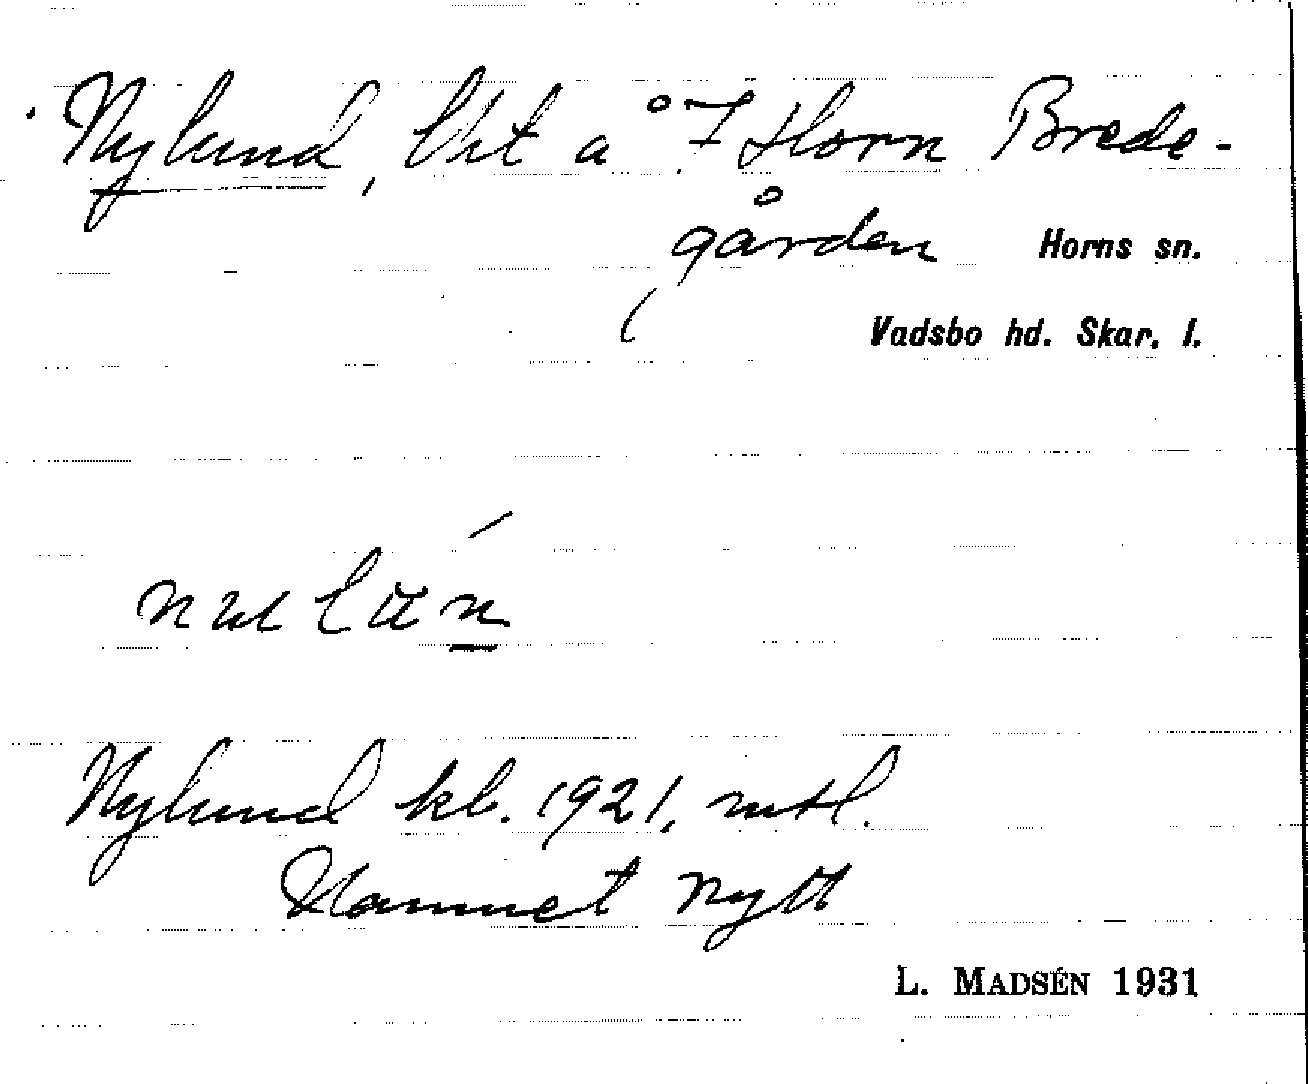 Nylund, lht a °7 Horn Brede-
gården Horns sn.
Vadsbo hd. Skar. l.
Nylund kb. 1921, mtl.
Namnet nytt
L. MADSÉN 1931